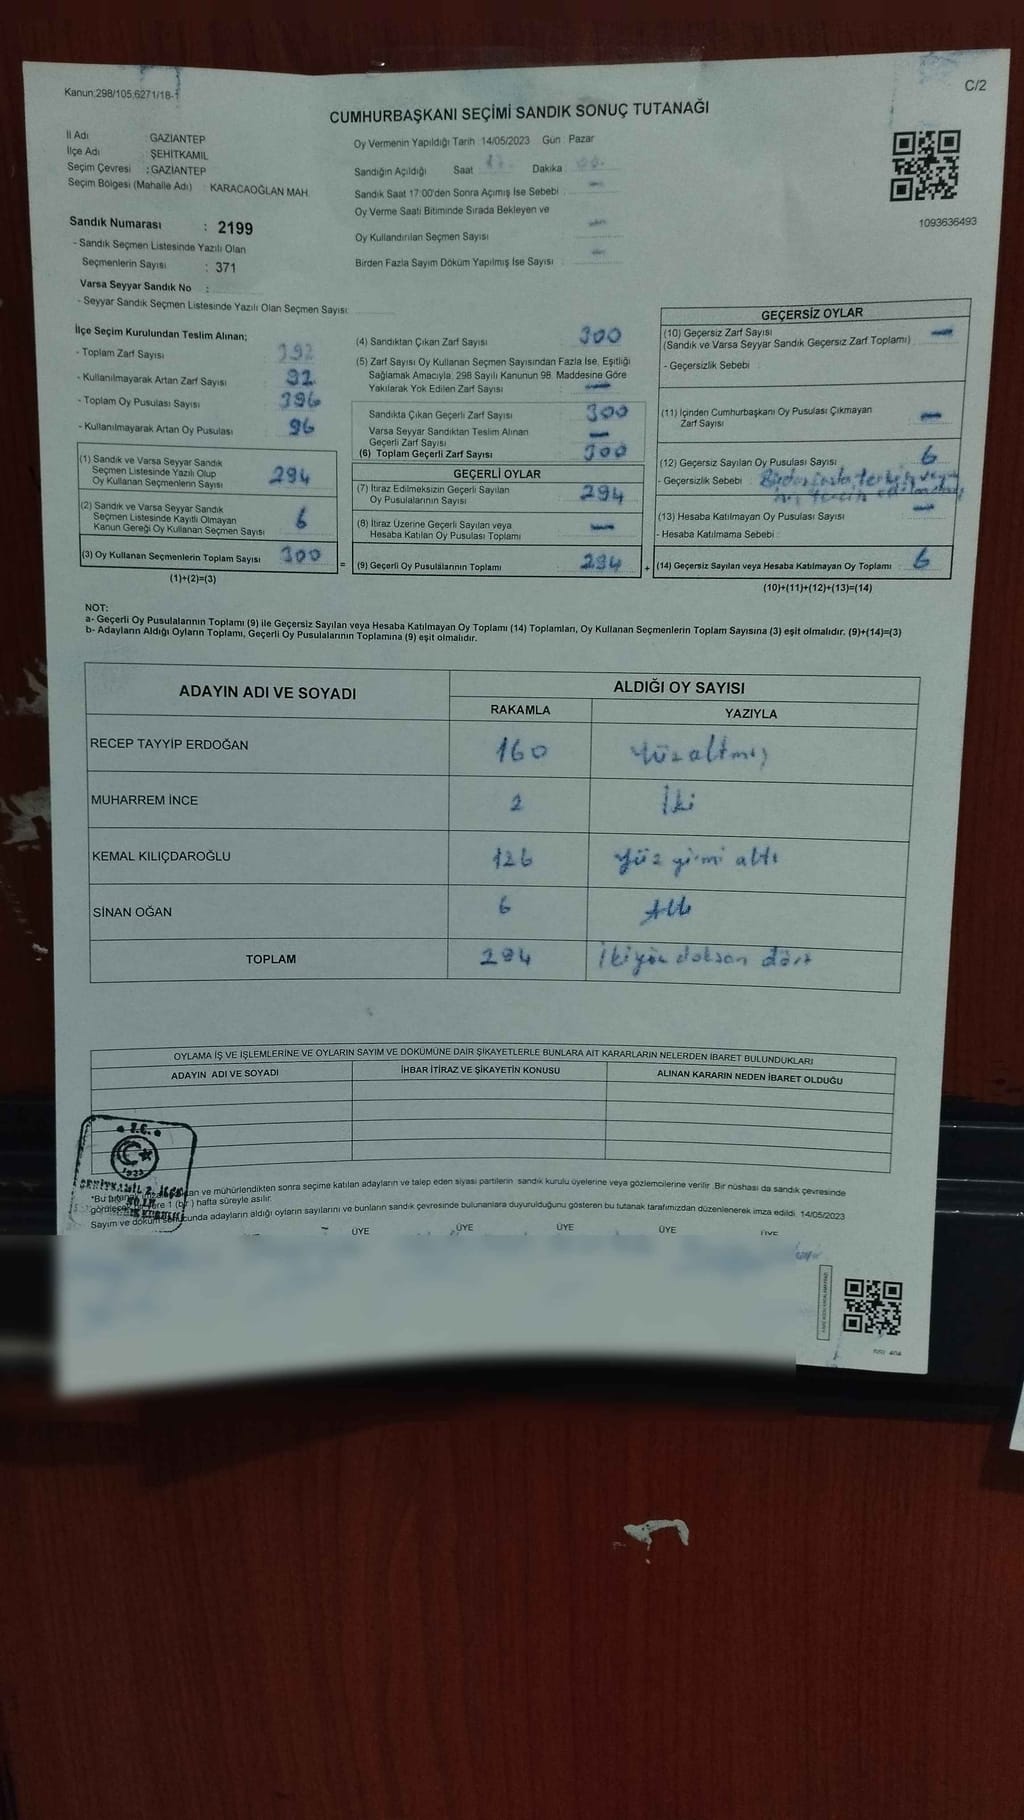 Kanun:298/105,6271/18-1
C/2
CUMHURBAŞKANI SEÇİMİ SANDIK SONUÇ TUTANAĞI
İl Adı : GAZİANTEP
İlçe Adı : ŞEHİTKAMİL
Seçim Çevresi : GAZİANTEP
Seçim Bölgesi (Mahalle Adı) : KARACAOĞLAN MAH.
Sandık Numarası : 2199
- Sandık Seçmen Listesinde Yazılı Olan
Seçmenlerin Sayısı : 371
Varsa Seyyar Sandık No :
- Seyyar Sandık Seçmen Listesinde Yazılı Olan Seçmen Sayısı
Oy Vermenin Yapıldığı Tarih : 14/05/2023 Gün : Pazar
Sandığın Açıldığı Saat 17 Dakika 00
Sandık Saat 17:00'den Sonra Açımış İse Sebebi : —
Oy Verme Saati Bitiminde Sırada Bekleyen ve
Oy Kullandırılan Seçmen Sayısı : —
Birden Fazla Sayım Döküm Yapılmış İse Sayısı : —
1093636493
İlçe Seçim Kurulundan Teslim Alınan;
- Toplam Zarf Sayısı : 392
- Kullanılmayarak Artan Zarf Sayısı : 92
- Toplam Oy Pusulası Sayısı : 396
- Kullanılmayarak Artan Oy Pusulası : 96
(1) Sandık ve Varsa Seyyar Sandık
Seçmen Listesinde Yazılı Olup
Oy Kullanan Seçmenlerin Sayısı 294
(2) Sandık ve Varsa Seyyar Sandık
Seçmen Listesinde Kayıtlı Olmayan
Kanun Gereği Oy Kullanan Seçmen Sayısı 6
(3) Oy Kullanan Seçmenlerin Toplam Sayısı 300
(1)+(2)=(3)
(4) Sandıktan Çıkan Zarf Sayısı : 300
(5) Zarf Sayısı Oy Kullanan Seçmen Sayısından Fazla İse, Eşitliği
Sağlamak Amacıyla, 298 Sayılı Kanunun 98. Maddesine Göre
Yakılarak Yok Edilen Zarf Sayısı : —
Sandıkta Çıkan Geçerli Zarf Sayısı : 300
Varsa Seyyar Sandıktan Teslim Alınan
Geçerli Zarf Sayısı : —
(6) Toplam Geçerli Zarf Sayısı : 300
GEÇERLİ OYLAR
(7) İtiraz Edilmeksizin Geçerli Sayılan
Oy Pusulalarının Sayısı : 294
(8) İtiraz Üzerine Geçerli Sayılan veya
Hesaba Katılan Oy Pusulası Toplamı : —
= (9) Geçerli Oy Pusulalarının Toplamı : 294
GEÇERSİZ OYLAR
(10) Geçersiz Zarf Sayısı
(Sandık ve Varsa Seyyar Sandık Geçersiz Zarf Toplamı) : —
- Geçersizlik Sebebi :
(11) İçinden Cumhurbaşkanı Oy Pusulası Çıkmayan
Zarf Sayısı : —
(12) Geçersiz Sayılan Oy Pusulası Sayısı : 6
- Geçersizlik Sebebi : Birden fazla tercih veya
hiç tercih
(13) Hesaba Katılmayan Oy Pusulası Sayısı : —
- Hesaba Katılmama Sebebi :
+ (14) Geçersiz Sayılan veya Hesaba Katılmayan Oy Toplamı : 6
(10)+(11)+(12)+(13)=(14)
NOT:
a- Geçerli Oy Pusulalarının Toplamı (9) ile Geçersiz Sayılan veya Hesaba Katılmayan Oy Toplamı (14) Toplamları, Oy Kullanan Seçmenlerin Toplam Sayısına (3) eşit olmalıdır. (9)+(14)=(3)
b- Adayların Aldığı Oyların Toplamı, Geçerli Oy Pusulalarının Toplamına (9) eşit olmalıdır.
ADAYIN ADI VE SOYADI ALDIĞI OY SAYISI
RAKAMLA YAZIYLA
RECEP TAYYİP ERDOĞAN 160 Yüzaltmış
MUHARREM İNCE 2 İki
KEMAL KILIÇDAROĞLU 126 Yüz yirmi altı
SİNAN OĞAN 6 Altı
TOPLAM 294 İkiyüz doksan dört
OYLAMA İŞ VE İŞLEMLERİNE VE OYLARIN SAYIM VE DÖKÜMÜNE DAİR ŞİKAYETLERLE BUNLARA AİT KARARLARIN NELERDEN İBARET BULUNDUKLARI
ADAYIN ADI VE SOYADI İHBAR İTİRAZ VE ŞİKAYETİN KONUSU ALINAN KARARIN NEDEN İBARET OLDUĞU
T.C.
1923
*Bu tutanak ve mühürlendikten sonra seçime katılan adayların ve talep eden siyasi partilerin sandık kurulu üyelerine veya gözlemcilerine verilir. Bir nüshası da sandık çevresinde
1 (bir) hafta süreyle asılır.
Sayım ve döküm sonucunda adayların aldığı oyların sayılarını ve bunların sandık çevresinde bulunanlara duyurulduğunu gösteren bu tutanak tarafımızdan düzenlenerek imza edildi. 14/05/2023
ÜYE ÜYE ÜYE ÜYE ÜYE